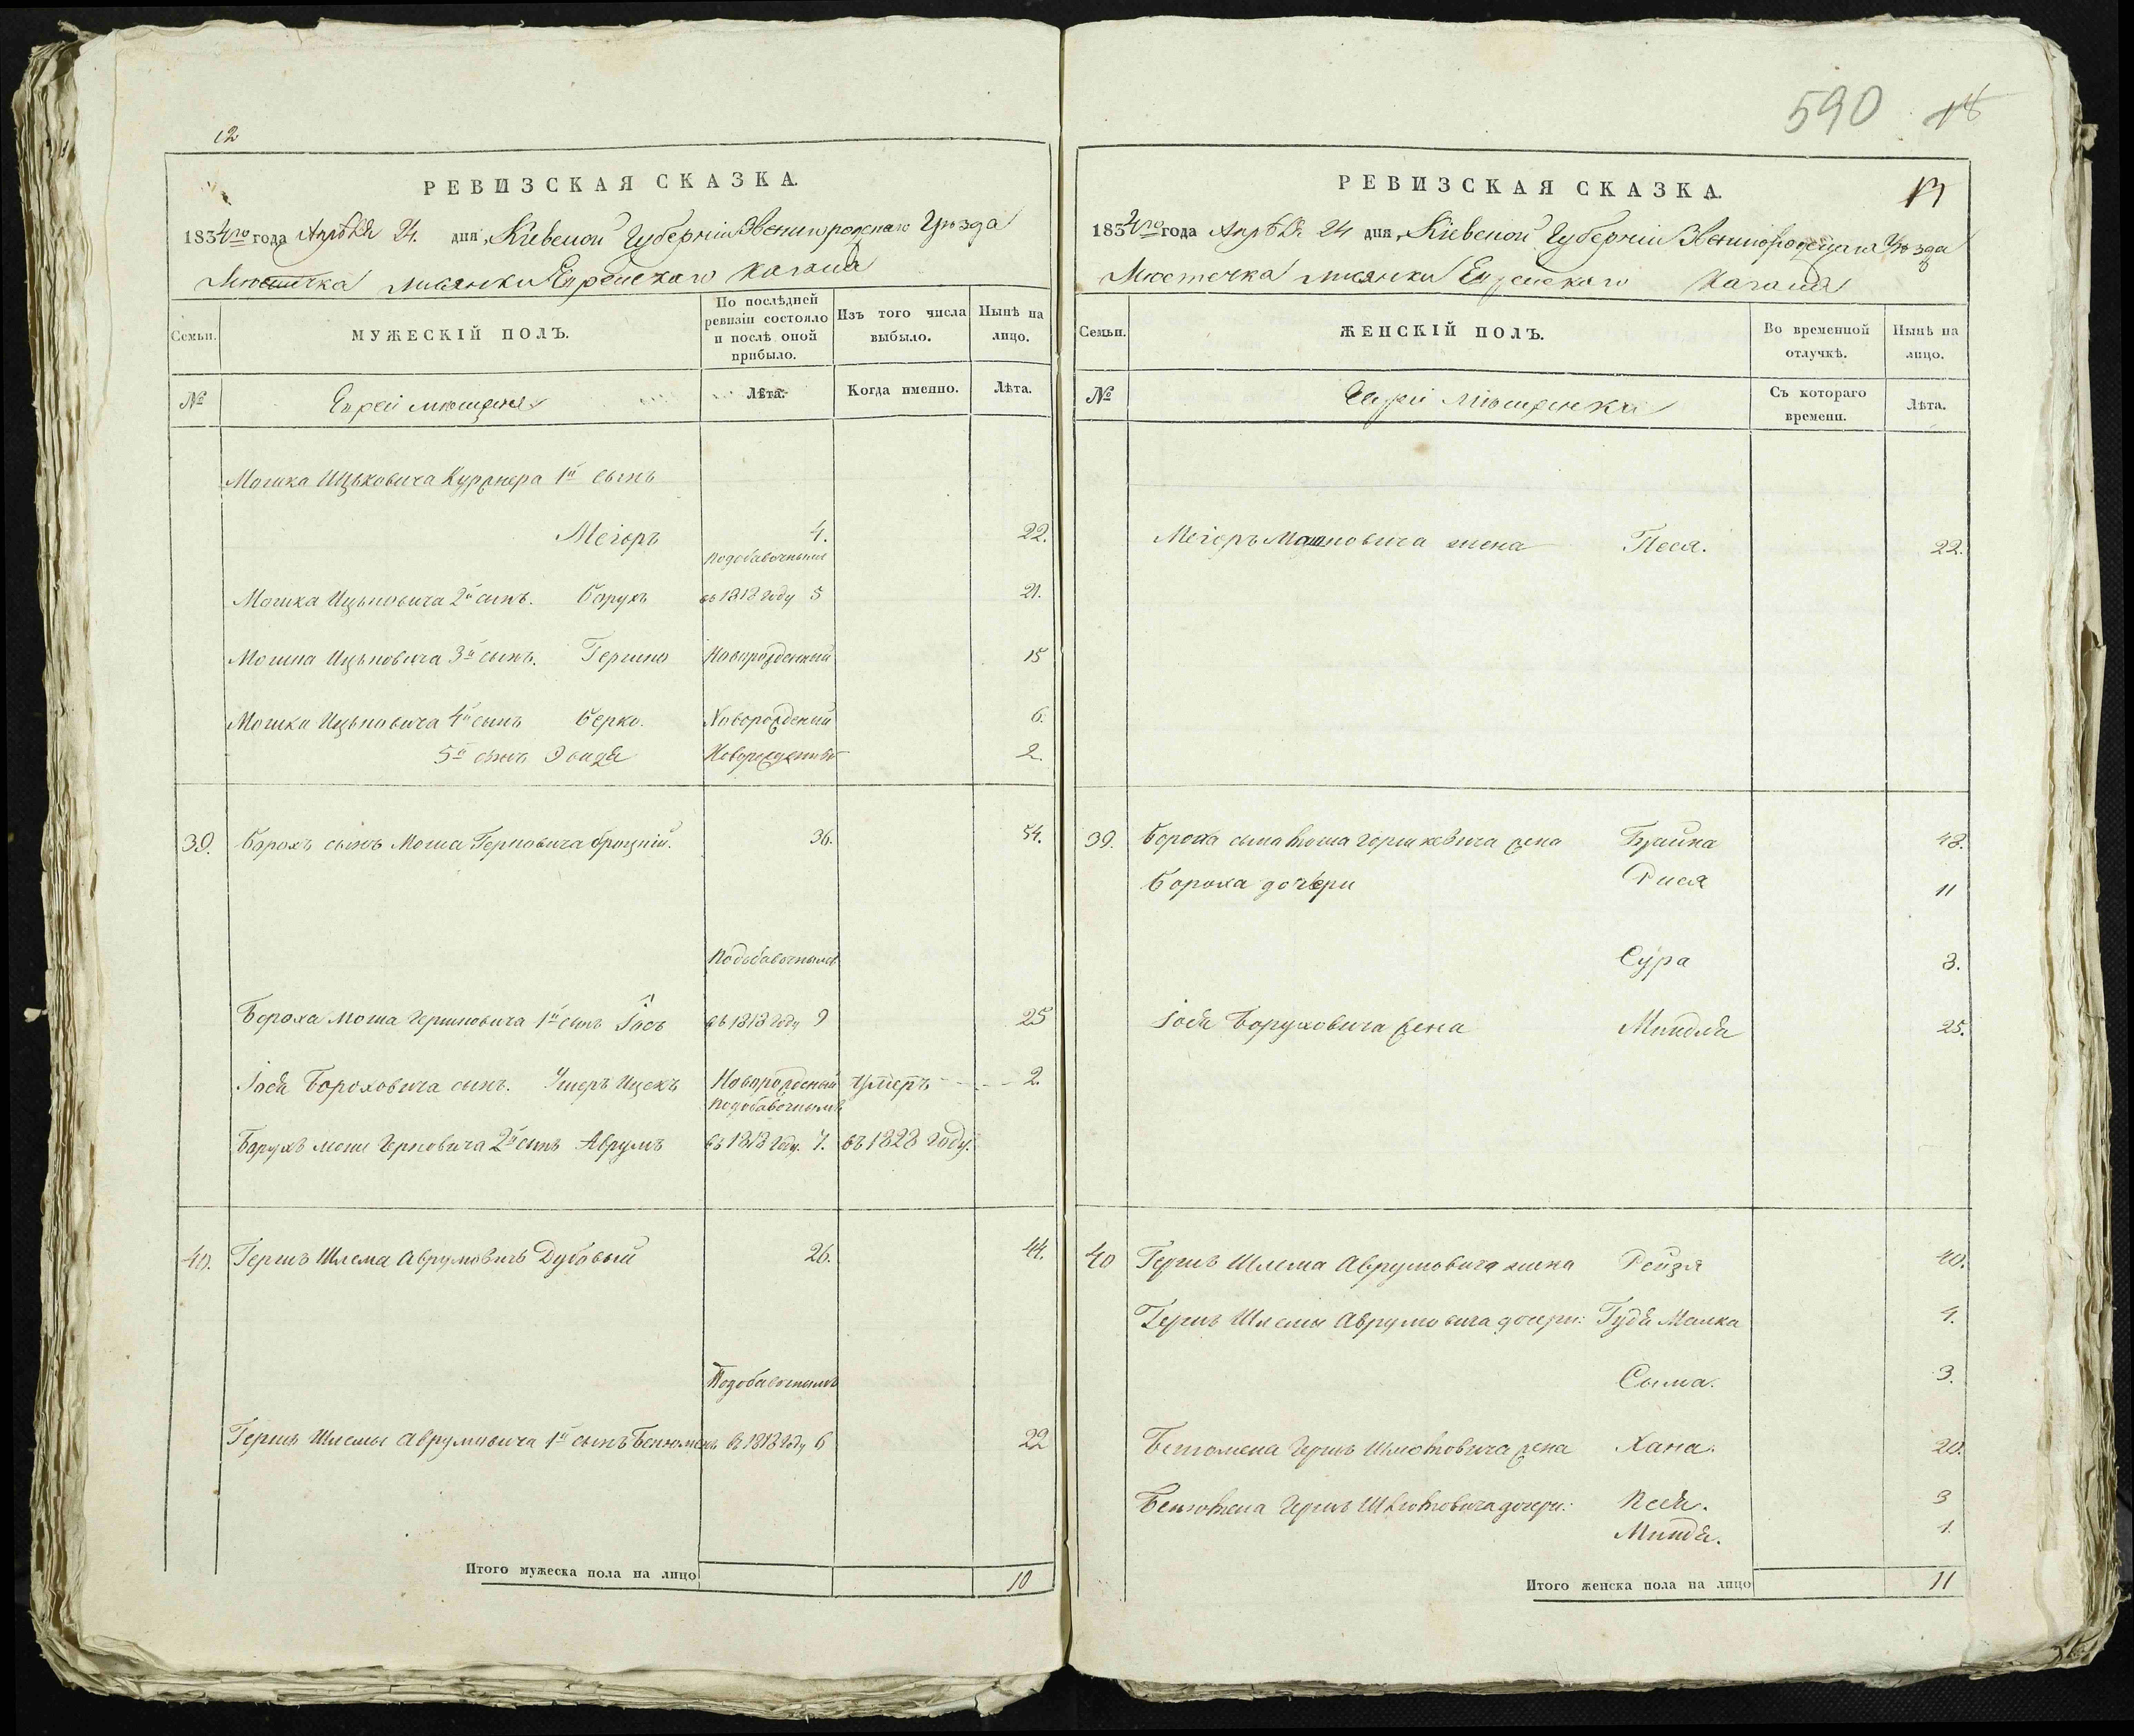 12
РЕВИЗСКАЯ СКАЗКА.
1834го года Апрѣля 24. дня, Кіевской Губерніи Звенигородскаго Уѣзда
Мѣстечка Лисянки Еврейскаго Кагала
Семьи.
МУЖЕСКІЙ ПОЛЪ.
По послѣдней ревизіи состояло и послѣ оной прибыло.
Изъ того числа выбыло.
Нынѣ на лицо.
№
Евреи мѣщане
Лѣта.
Когда именно.
Лѣта.
Мошка Ицьковича 1й сынъ
Меіоръ 4. 22.
подобавочнымъ
Мошка Ицьковича 2й сынъ. Барухъ въ 1818 году 5 21.
Мошка Ицьковича 3й сынъ. Гершко Новорожденный 15
Мошки Ицьковича 4й сынъ Берко. Новорожденый 6.
5й сынъ Новорожденый 2.
39. Борохъ сынъ Моша Герковича Броцкій. 36. 54.
Подобавочнымъ
Бороха Моша Гершковича 1й сынъ Іосъ въ 1818 году 9 25
Іося Бороховича сынъ. Ушеръ Ицекъ Новорожденый умеръ 2.
подобавочнымъ
Барухъ Моши Герковича 2й сынъ Аврумъ въ 1818 году. 7. въ 1828 году.
40. Гершъ Шлема Аврумовичъ Дубовый 26. 44.
Подобавочнымъ
Гершъ Шлемы Аврумовича 1й сынъ Бенюменъ въ 1818 году 6 22
Итого мужеска пола на лицо 10
590 18
13
РЕВИЗСКАЯ СКАЗКА.
1834го года Апрѣля 24 дня, Кіевской Губерніи Звенигородскаго Уѣзда
Мѣстечка Лисянки Еврейскаго Кагала
Семьи.
ЖЕНСКІЙ ПОЛЪ.
Во временной отлучкѣ.
Нынѣ на лицо.
№
Евреи Мѣщанки
Съ котораго времени.
Лѣта.
Меіоръ Мошковича жена Песя. 22.
39. Бороха сына Моша Гершковича жена Брайна 48.
Бороха дочери Рися 11
Сура 3.
Іося Боруховича жена Миндля 25.
40 Гершъ Шлема Аврумовича жена Рейзя 40.
Гершъ Шлемы Аврумовича дочери: Гудя Малка 4.
Сыма. 3.
Бенюмена Гершъ Шлемовича жена Хана. 20.
Бенюмена Гершъ Шлемовича дочери: Песя. 3
Миндя. 1.
Итого женска пола на лицо 11